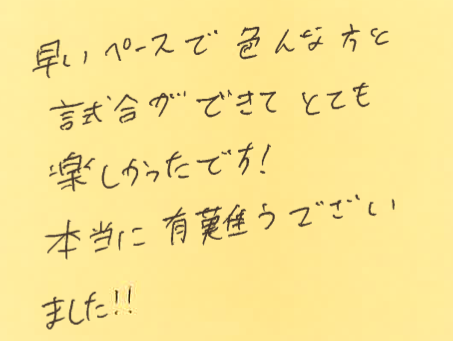 早いペースで色んな方と
試合ができてとても
楽しかったです!
本当に有難うございい
ました!!